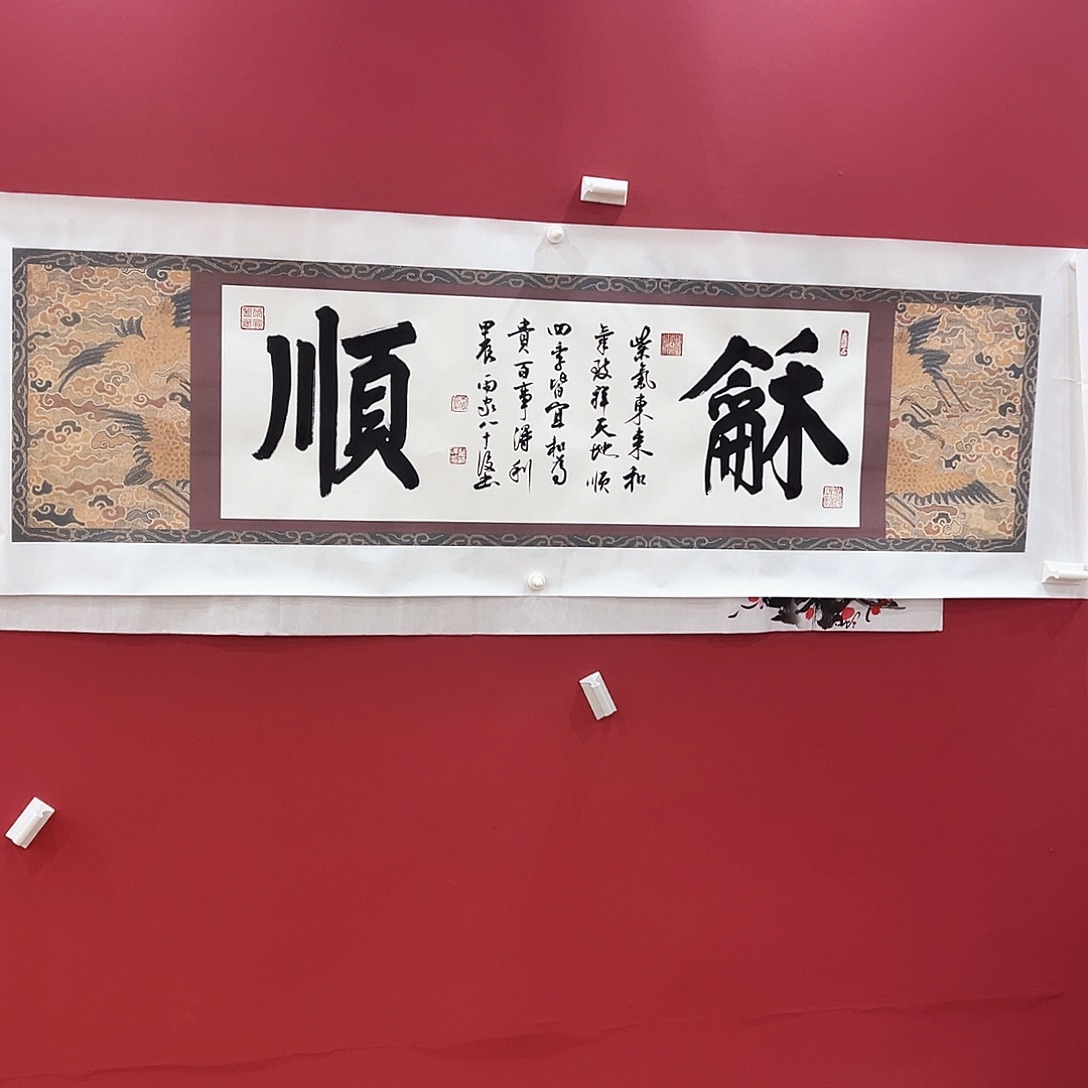 龢
紫氣東来和
氣致祥天地順
四季皆宜和為
貴百事得利
甲辰 八十
順